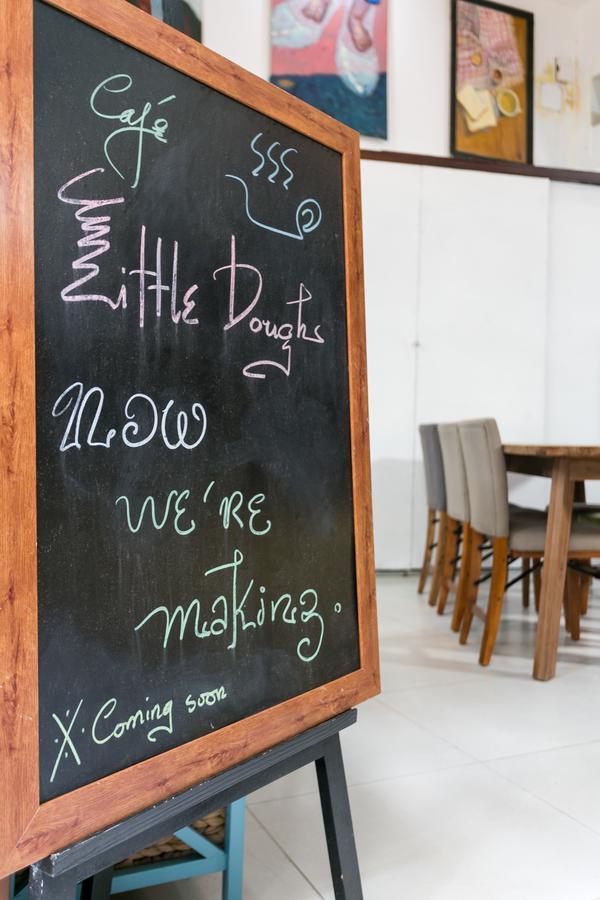 Café
Little Doughs
Now
WE'RE
making.
※ Coming soon